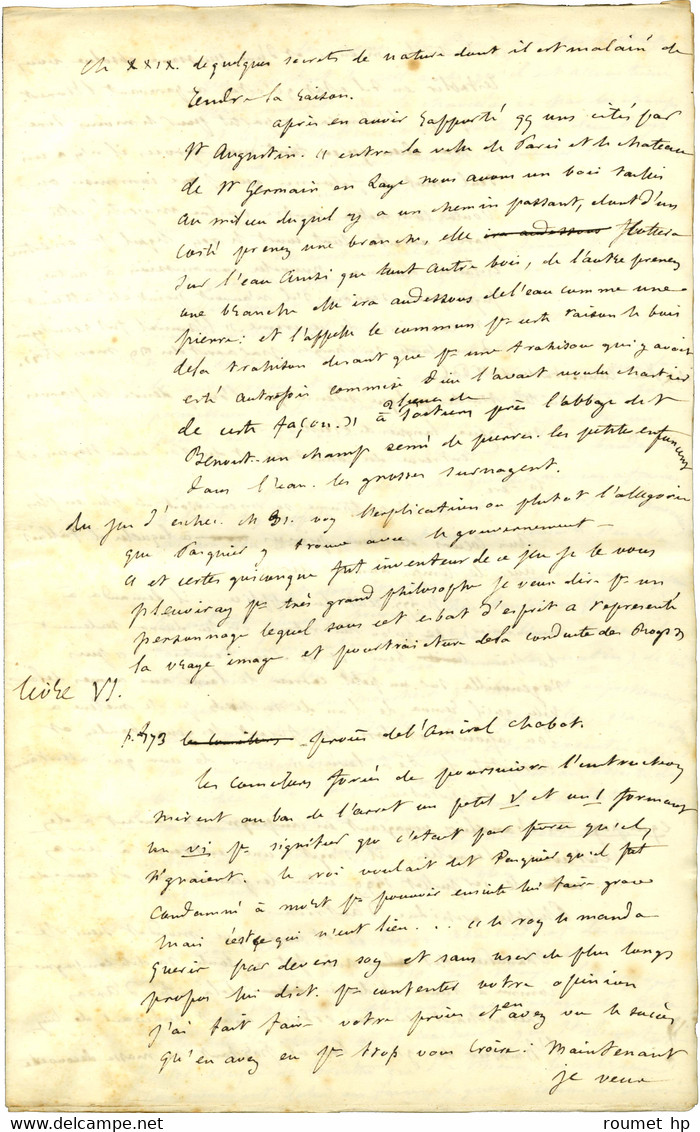 Ch XXIX. de quelques secrets de nature dont il est malaisé de
rendre la raison.
après en avoir rapporté qq uns cités par
St Augustin. « entre la ville de Paris et le chateau
de St Germain en Laye nous avons un bois taillis
au milieu duquel y a un chemin passant, dont d'un
costé prenez une branche, elle ira audessous flottera
sur l'eau ainsi que tout autre bois, de l'autre prenez
une branche elle ira audessous de l'eau comme une
pierre: et l'appelle le commun pr ceste raison le bois
de la trahison disant que pr une trahison qui y avoit
esté autrefois commise Dieu l'avait voulu chastier
de ceste façon. » à 2 lieues de Poitiers près l'abbaye de St
Benoist. un champ semé de pierres. les petites enfoncent
dans l'eau. les grosses surnagent.
du jeu d'echec. ch 31. voy l'explication ou plutot l'allegorie
que Pasquier y trouve avec le gouvernement –
« et certes quiconque fut inventeur de ce jeu je le vous
pleuviray pr très grand philosophe je veux dire pr un
personnage lequel sous cet esbat d'esprit a representé
la vraye image et pourtraicture de la conduite des Roys »
livre VI.
p. 573 procès de l'Amiral Chabot.
les comissres forcés de poursuivre l'instruction
mirent au bas de l'arret un petit V et un I formant
un vi pr signifier que c'était par force qu'ils
signaient. le roi voulait dit Pasquier qu'il fut
condamné à mort pr pouvoir ensuite lui faire grace
mais c'est ce qui n'eut lieu... « le roy le manda
querir par devers soy et sans user de plus longs
propos lui dict. pr contenter votre opinion
j'ai fait faire votre procès et en avez vu le succès
qu'en avez eu pr trop vous croire: Maintenant
je veux
roumet hp